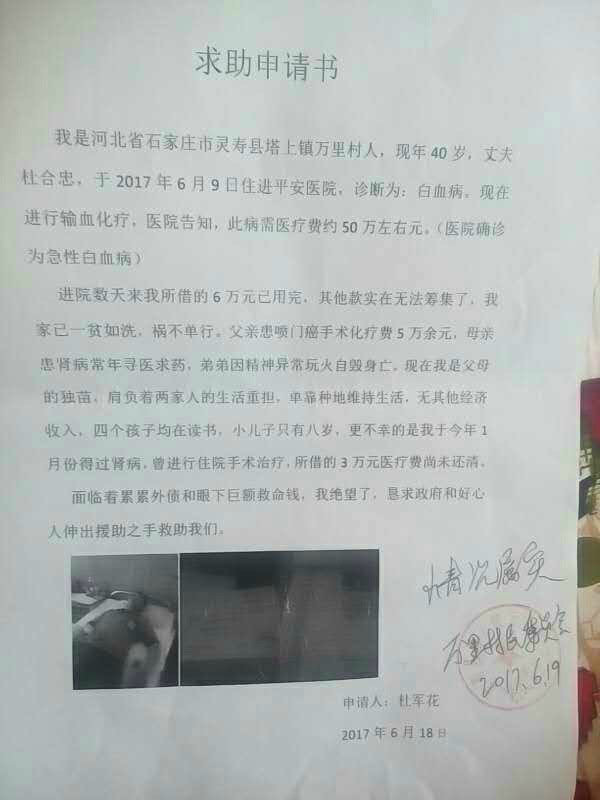 求助申请书
我是河北省石家庄市灵寿县塔上镇万里村人，现年 40 岁，丈夫
杜合忠，于 2017 年 6 月 9 日住进平安医院，诊断为：白血病。现在
进行输血化疗，医院告知，此病需医疗费约 50 万左右元。（医院确诊
为急性白血病）
进院数天来我所借的 6 万元已用完，其他款实在无法筹集了，我
家已一贫如洗，祸不单行。父亲患喷门癌手术化疗费 5 万余元，母亲
患肾病常年寻医求药，弟弟因精神异常玩火自毁身亡。现在我是父母
的独苗，肩负着两家人的生活重担，单靠种地维持生活，无其他经济
收入，四个孩子均在读书，小儿子只有八岁，更不幸的是我于今年 1
月份得过肾病，曾进行住院手术治疗，所借的 3 万元医疗费尚未还清。
面临着累累外债和眼下巨额救命钱，我绝望了，恳求政府和好心
人伸出援助之手救助我们。
情况属实
万里村民委员会
2017.6.19
申请人：杜军花
2017 年 6 月 18 日